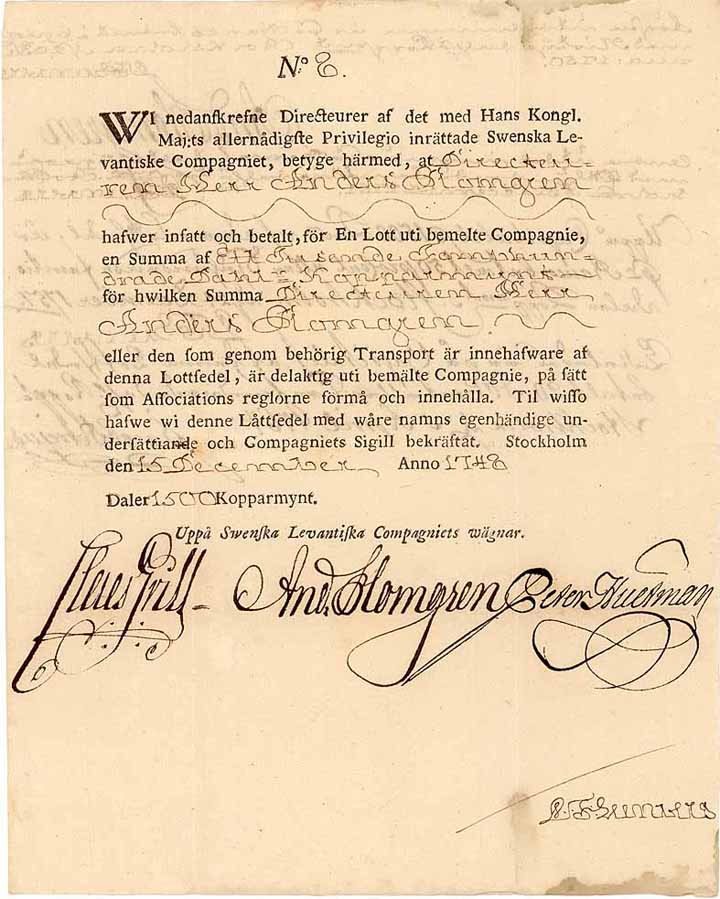 N:o 8.
WI nedanskrefne Directeurer af det med Hans Kongl.
Maj:ts allernådigste Privilegio inrättade Swenska Le-
vantiske Compagniet, betyge härmed, at Directeu-
ren Herr Anders Plomgren
hafwer insatt och betalt, för En Lott uti bemelte Compagnie,
en Summa af Ett Tusende Femhun-
drade Dahl:r Kopparmynt
för hwilken Summa Directeuren Herr
Anders Plomgren.
eller den som genom behörig Transport är innehafware af
denna Lottsedel, är delaktig uti bemälte Compagnie, på sätt
som Associations reglorne förmå och innehålla. Til wisso
hafwe wi denne Låttsedel med wåre namns egenhändige un-
dersättiande och Compagniets Sigill bekräftat. Stockholm
den 15 December Anno 1748
Daler 1500 Kopparmynt.
Uppå Swenska Levantiska Compagniets wägnar.
Claes Grill And. Plomgren Peter Huetman